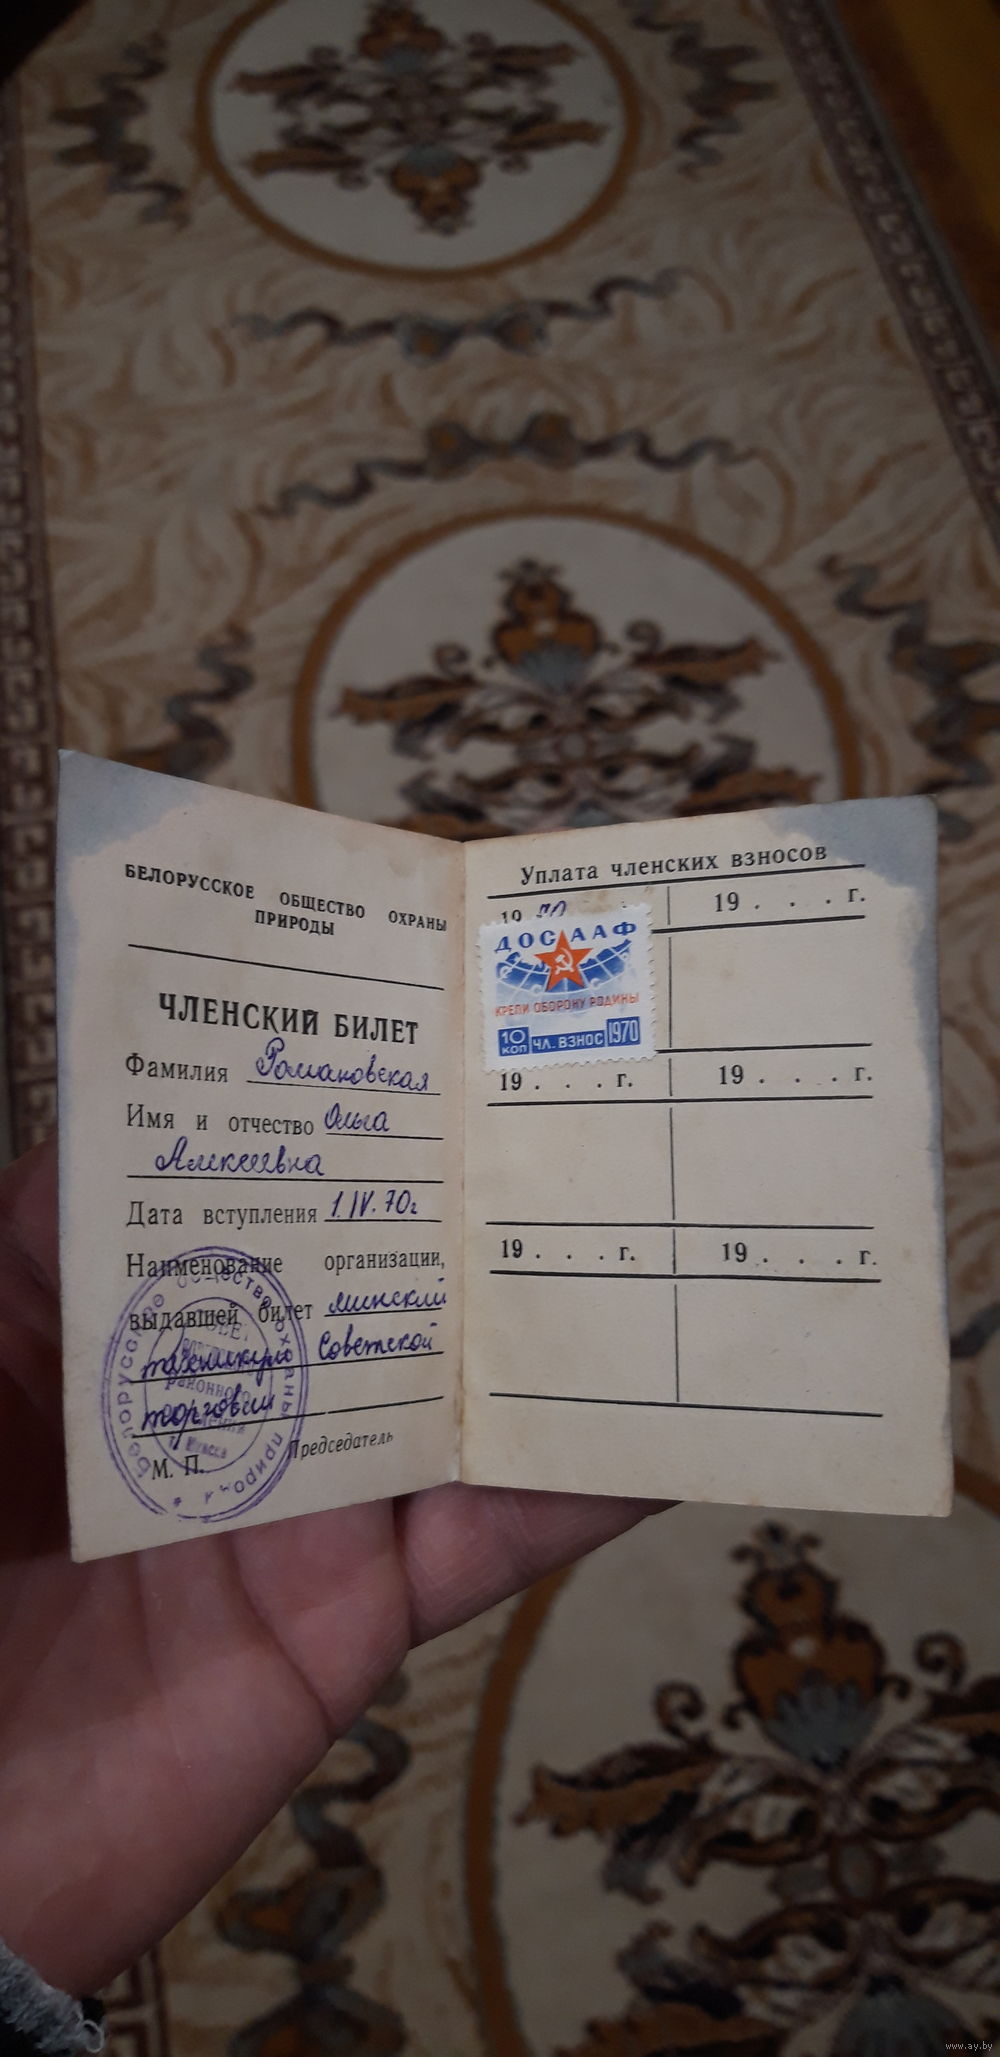 БЕЛОРУССКОЕ ОБЩЕСТВО ОХРАНЫ
ПРИРОДЫ
ЧЛЕНСКИЙ БИЛЕТ
Фамилия Романовская
Имя и отчество Ольга
Алексеевна
Дата вступления 1.IV.70г
Наименование организации,
выдавшей билет минский
техникум Советской
торговли
М. П. Председатель
Белорусское общество охраны природы
районного
г. Минска
Уплата членских взносов
19 70
19 . . . г.
ДОСААФ
КРЕПИ ОБОРОНУ РОДИНЫ
10 КОП ЧЛ. ВЗНОС 1970
19 . . . г. 19 . . . г.
19 . . . г. 19 . . . г.
www.ay.by